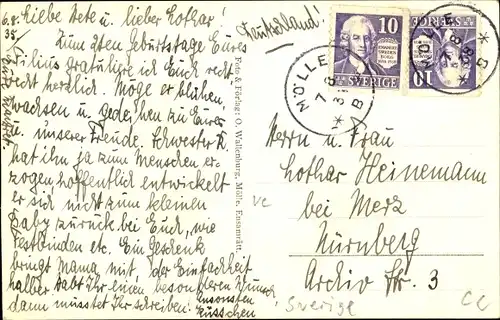 6.8.
38.
Liebe Nete u. lieber Lothar!
Zum 2ten Geburtstage Eures
Filius gratuliere ich Euch recht
recht herzlich. Möge er blühen,
wachsen u. gedeihen zu Eurer
u. unserer Freude. Schwester K.
hat ihn ja zum Menschen er-
zogen, hoffentlich entwickelt
er sich nicht zum kleinen
Baby zurück bei Euch, wie
Festbinden etc. Ein Geschenk
bringt Mama mit, der Einfachheit
halber. Habt Ihr einen besonderen Wunsch
dann müsstet Ihr schreiben!
Foto & Förlag: O. Wallenburg, Mölle, Ensamrätt.
Deutschland!
10
EMANUEL
SVERIGE
MÖLLE
7 8
38
B
10
SVERIGE
MÖLLE
7 8
38
B
Herrn u. Frau
Lothar Heinemann
bei Merz
Nürnberg
Archiv Str. 3
ve
Sverige
CC